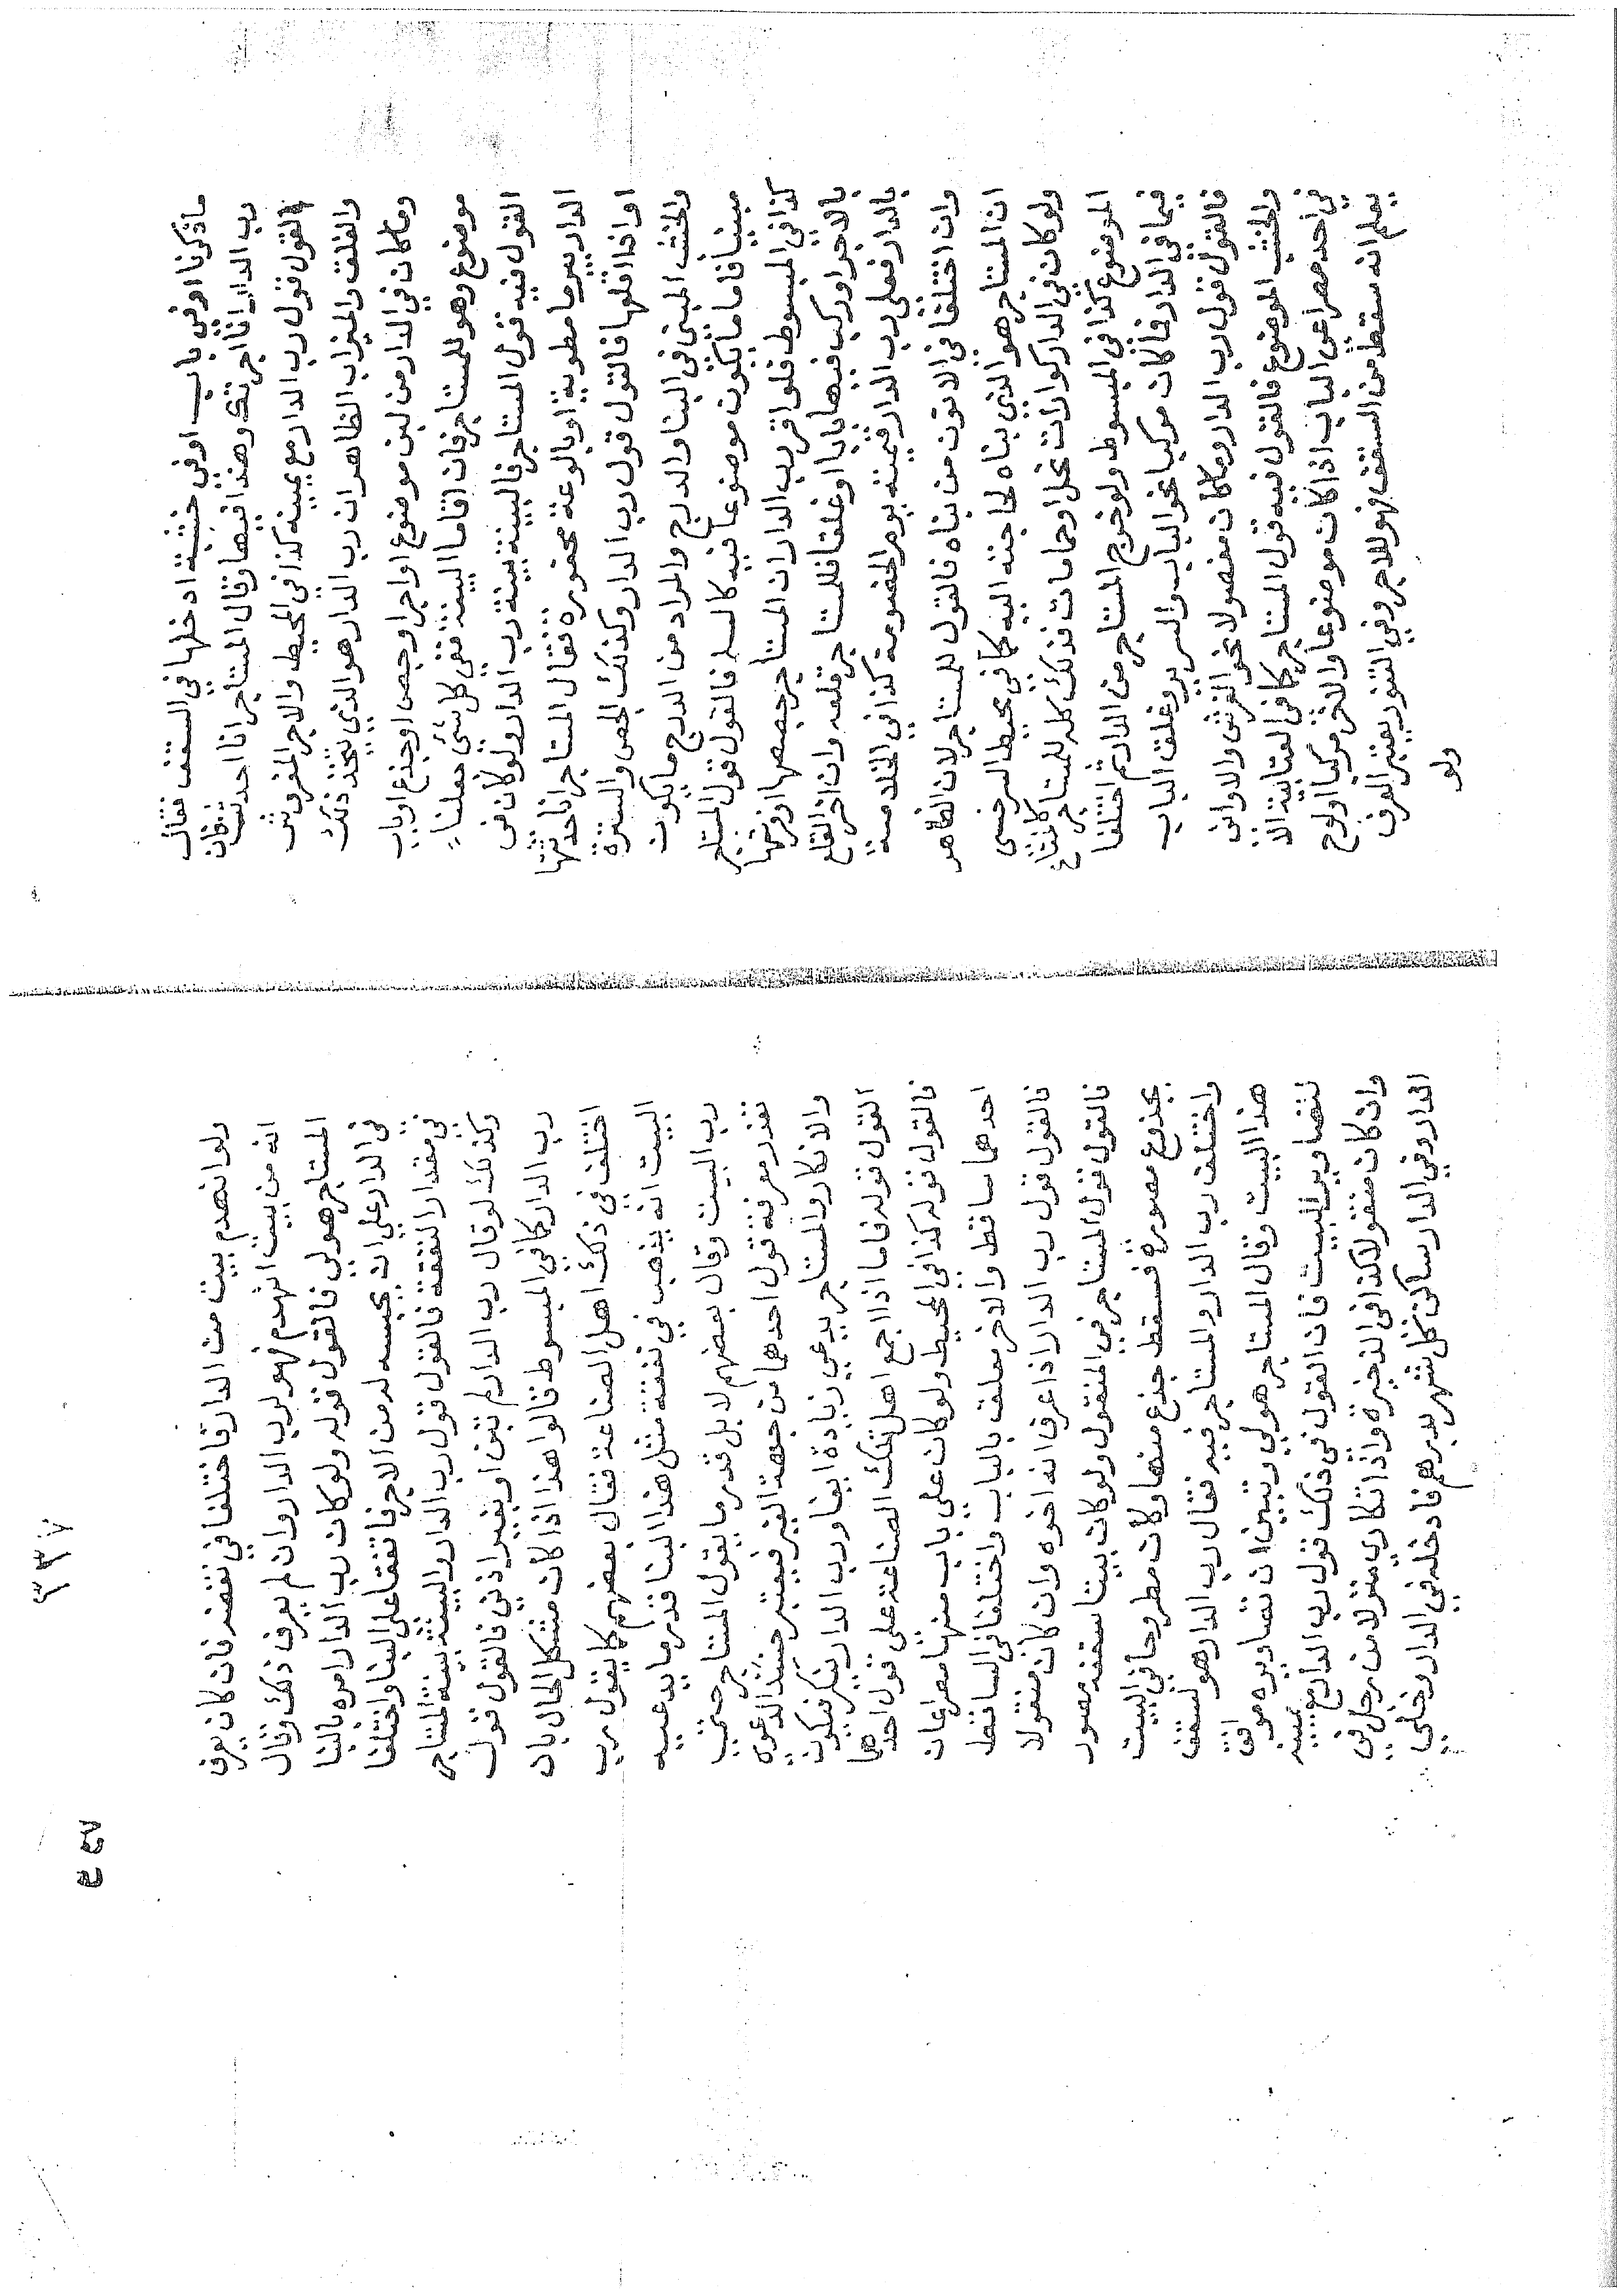 ما ذكرنا اوفي باب اوفي خشبة ادخلها في السقف فقال
رب الدار انا اجرتك وهذا فيها وقال المستاجر انا احدثت كان
القول قول رب الدار مع يمينه كذا في المحيط والاجر المفروش
والغلق والميزاب الظاهر ان رب الدار هو الذي يتخذ ذلك
وما كان في الدار من لبن موضوع او اجر او جص او جذع او باب
موضوع وهو للمستاجر فان اقاما البينة ففي كل شئ جعلنا
القول فيه قول المستاجر فالبينة بينة رب الدار ولو كان فى
الدار بير ما مطوية او بالوعة محفورة فقال المستاجر انا احدثتها
او انا اقلعها فالقول قول رب الدار وكذلك الجص والسترة
والخشب المبنى في البنا والدرج والمراد من الدرج ما يكون
مبنيا فاما ما يكون موضوعا فيه كالسلم فالقول قول المستاجر
كذا في المبسوط فلو اقر رب الدار ان المستاجر جصصها او فرشها
بالاجر او ركب فيها بابا او غلقا فللمستاجر قلعه وان اضر القلع
بالدار فعلى رب الدار قيمته يوم الخصومة كذا في الخلاصة
وان اختلفا فى الاتون من بناه فالقول للمستاجر لان الظاهر
ان المستاجر هو الذي بناه لحاجته اليه كما في محيط السرخسى
ولو كان في الدار كوارات نحل او حمامات فذلك كله للمستاجر كالمتاع
الموضوع كذا فى المبسوط ولو خرج المستاجر من الدار ثم اختلفا
فيما في الدار فان كان مركبا نحو الباب والسرير وغلق الباب
فالقول قول رب الدار وما كان مفصولا نحو الفرش والاوانى
والخشب الموضوع فالقول فيه قول المستاجر كما فى العتابية الا
في احد مصراعى الباب اذا كان موضوعا والاخر مركبا او لوح
يعلم انه سقط من السقف فهو للاجر وفي التنور يعتبر العرف
ولو
٣٣٧
ولو انهدم بيت من الدار فاختلفا في نقضه فان كان يعرف
انه من بيت انهدم فهو لرب الدار وان لم يعرف ذلك وقال
المستاجر هو لي فالقول قوله ولو كان رب الدار امره بالبنا
فى الدار على ان يحسبه له من الاجر فاتفقا على البنا واختلفا
في مقدار النفقة فالقول قول رب الدار والبينة بينة المستاجر
وكذلك لو قال رب الدار لم تبن او بغير اذني فالقول قول
رب الدار كما في المبسوط قالوا هذا اذا كان مشكل الحال بان
اختلف في ذلك اهل الصناعة فقال بعضهم كما يقول رب
البيت انه يذهب في نفقة مثل هذا البنا قدر ما يدعيه
رب البيت وقال بعضهم لا بل قدر ما يقول المستاجر حتى
تعذر معرفة قول احدهما من جهة الغير فيعتبر حينئذ الدعوه
والانكار والمستاجر يدعي زيادة ايفا ورب الدار ينكر فيكون
القول قوله فاما اذا اجمع اهل تلك الصناعة على قول احدهما
فالقول قوله كذا في المحيط ولو كان على باب منها مصراعان
احدهما ساقط والاخر معلق بالباب واختلفا فى الساقط
فالقول قول رب الدار اذا عرف انه اخوه وان كان منقولا
فالقول قول المستاجر في المنقول ولو كان بيتا سقفه مصور
بجذوع مصورة فسقط جذع منها وكان مطروحا في البيت
واختلف رب الدار والمستاجر فيه فقال رب الدار هو لسقف
هذا البيت وقال المستاجر هو لي وتبين ان تصاويره موافق
لتصاوير البيت فان القول فى ذلك قول رب الدار مع يمينه
وان كان منقولا كذا في الذخيرة واذا تكارى منزلا من رجل في
الدار وفي الدار ساكن كل شهر بدرهم فادخله في الدار وخلى